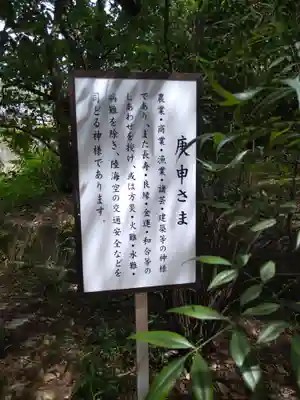 庚申さま
農業・商業・漁業・諸芸・建築等の神様
であり、また長寿・良縁・金運・和合等の
しあわせを授け、或は方災・火難・水難・
病難を除き、陸海空の交通安全などを
司どる神様であります。